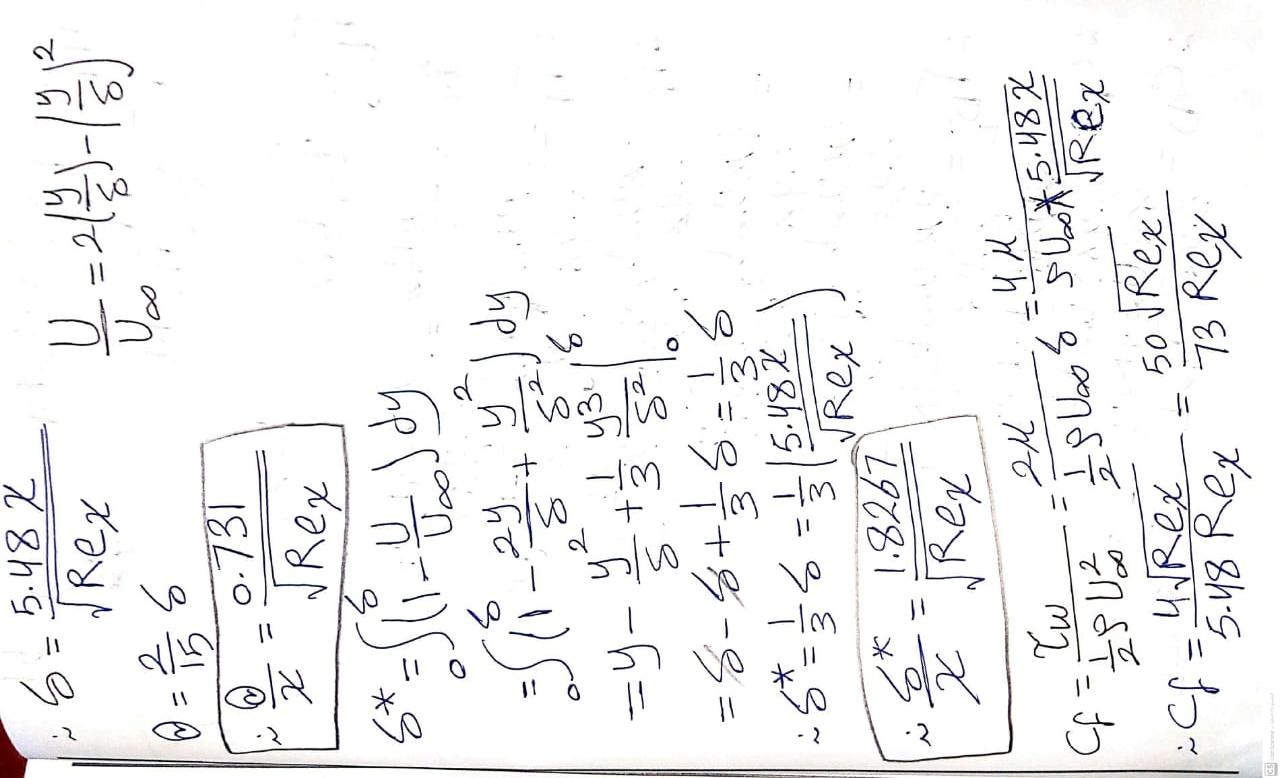 ∴ δ = 5.48x / √Rex    U/U∞ = 2(y/δ) - (y/δ)²
θ = 2/15 δ
∴ θ/x = 0.731 / √Rex
δ* = ∫₀^δ (1 - U/U∞) dy
= ∫₀^δ (1 - 2y/δ + y²/δ²) dy
= y - y²/δ + 1/3 y³/δ² |₀^δ
= δ - δ + 1/3 δ = 1/3 δ
∴ δ* = 1/3 δ = 1/3 (5.48x / √Rex)
∴ δ*/x = 1.8267 / √Rex
Cf = τw / (1/2 ρU∞²) = 2μ / (1/2 ρU∞δ) = 4μ / (ρU∞ * 5.48x / √Rex)
∴ Cf = 4√Rex / 5.48 Rex = 50√Rex / 73 Rex
CS